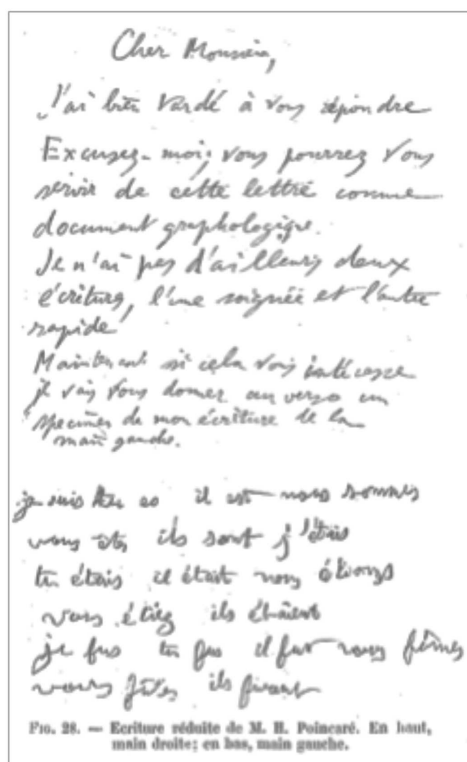 Cher Monsieur,
J'ai bien tardé à vous répondre
Excusez-moi; vous pourrez vous
servir de cette lettre comme
document graphologique.
Je n'ai pas d'ailleurs deux
écritures, l'une soignée et l'autre
rapide
Maintenant si cela vous intéresse
je vais vous donner au verso un
specimen de mon écriture de la
main gauche.
je suis tu es il est nous sommes
vous êtes ils sont j'étais
tu étais il était nous étions
vous étiez ils étaient
je fus tu fus il fut nous fûmes
vous fûtes ils furent
FIG. 28. — Ecriture réduite de M. H. Poincaré. En haut,
main droite; en bas, main gauche.